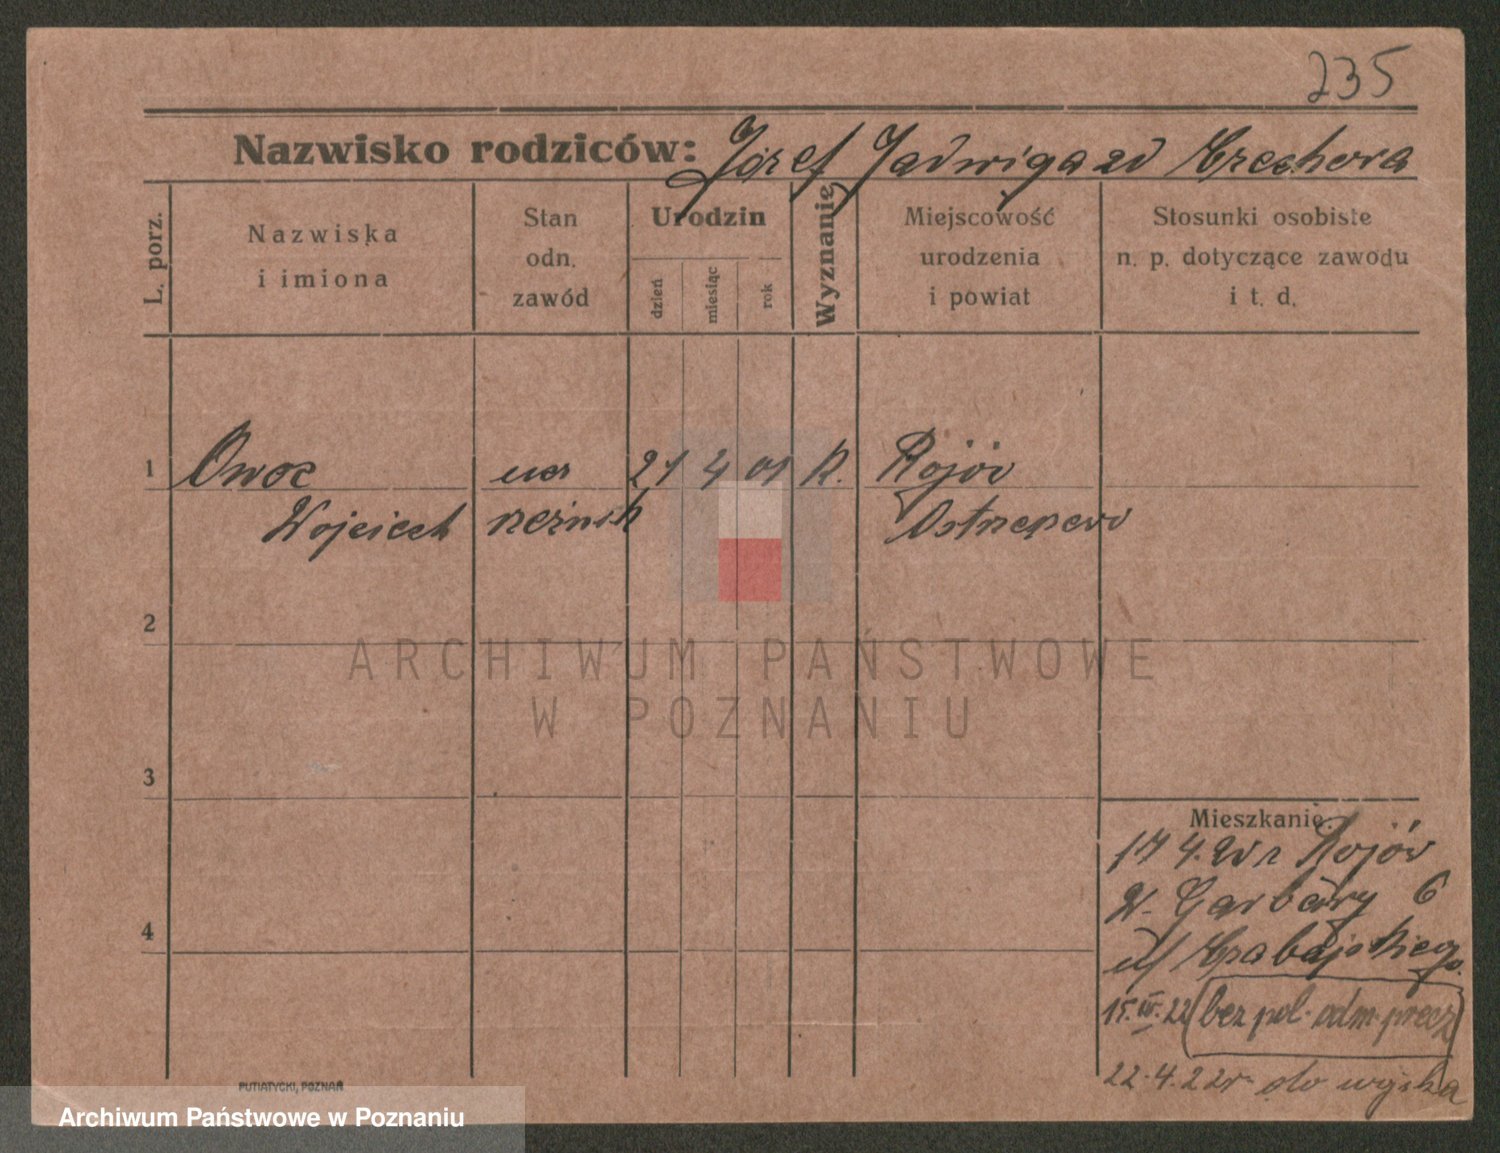 235
Nazwisko rodziców: Józef Jadwiga zd Czechora
L. porz.
Nazwiska
i imiona
Stan
odn.
zawód
Urodzin
dzień
miesiąc
rok
Wyznanie
Miejscowość
urodzenia
i powiat
Stosunki osobiste
n. p. dotyczące zawodu
i t. d.
1 Owoc 21 4 01 K. Rojów
Wojciech rzeźnik Ostrzeszów
2
3
4
Mieszkanie:
17 4. r Rojów
W. Garbary 6
u/
15. III. 22 bez pol. odm. precz
22.4.22r. do wojska
PUTIATYCKI, POZNAŃ
ARCHIWUM PAŃSTWOWE
W POZNANIU
Archiwum Państwowe w Poznaniu